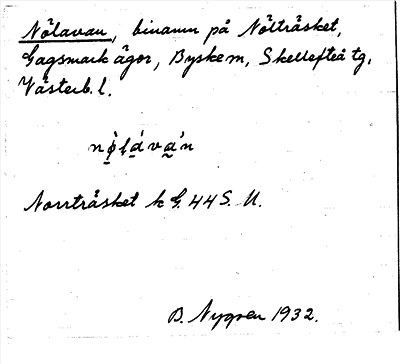 Nölavan, binamn på Nölträsket,
Gagsmark ägor, Byske m, Skellefteå tg,
Västerb. l.
nö̀lávàn
Norrträsket k G. 44 S. U.
B. Nygren 1932.